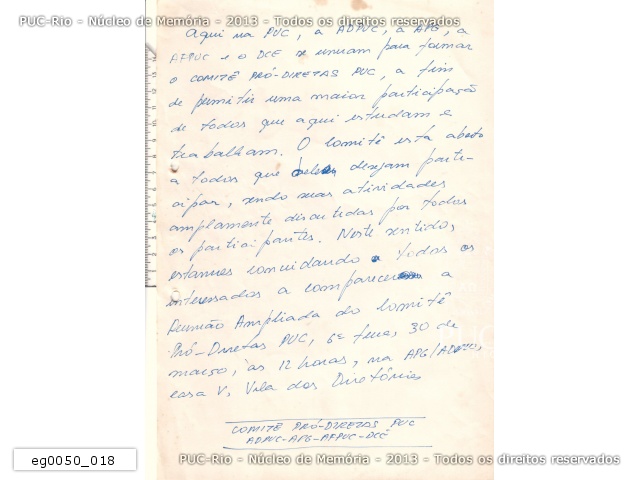 PUC-Rio - Núcleo de Memória - 2013 - Todos os direitos reservados
Aqui na PUC, a ADPUC, a APG, a
AFPUC e o DCE se uniram para formar
o COMITÊ PRÓ-DIRETAS PUC, a fim
de permitir uma maior participação
de todos que aqui estudam e
trabalham. O Comitê está aberto
a todos que desejam parti-
cipar, sendo suas atividades
amplamente discutidas por todos
os participantes. Neste sentido,
estamos convidando todos os
interessados a comparecerem a
Reunião Ampliada do Comitê
Pró-Diretas PUC, 6ª feira, 30 de
março, às 12 horas, na APG/ADPUC,
casa V, Vila dos Diretórios
COMITÊ PRÓ-DIRETAS PUC
ADPUC-APG-AFPUC-DCE
eg0050_018
PUC-Rio - Núcleo de Memória - 2013 - Todos os direitos reservados